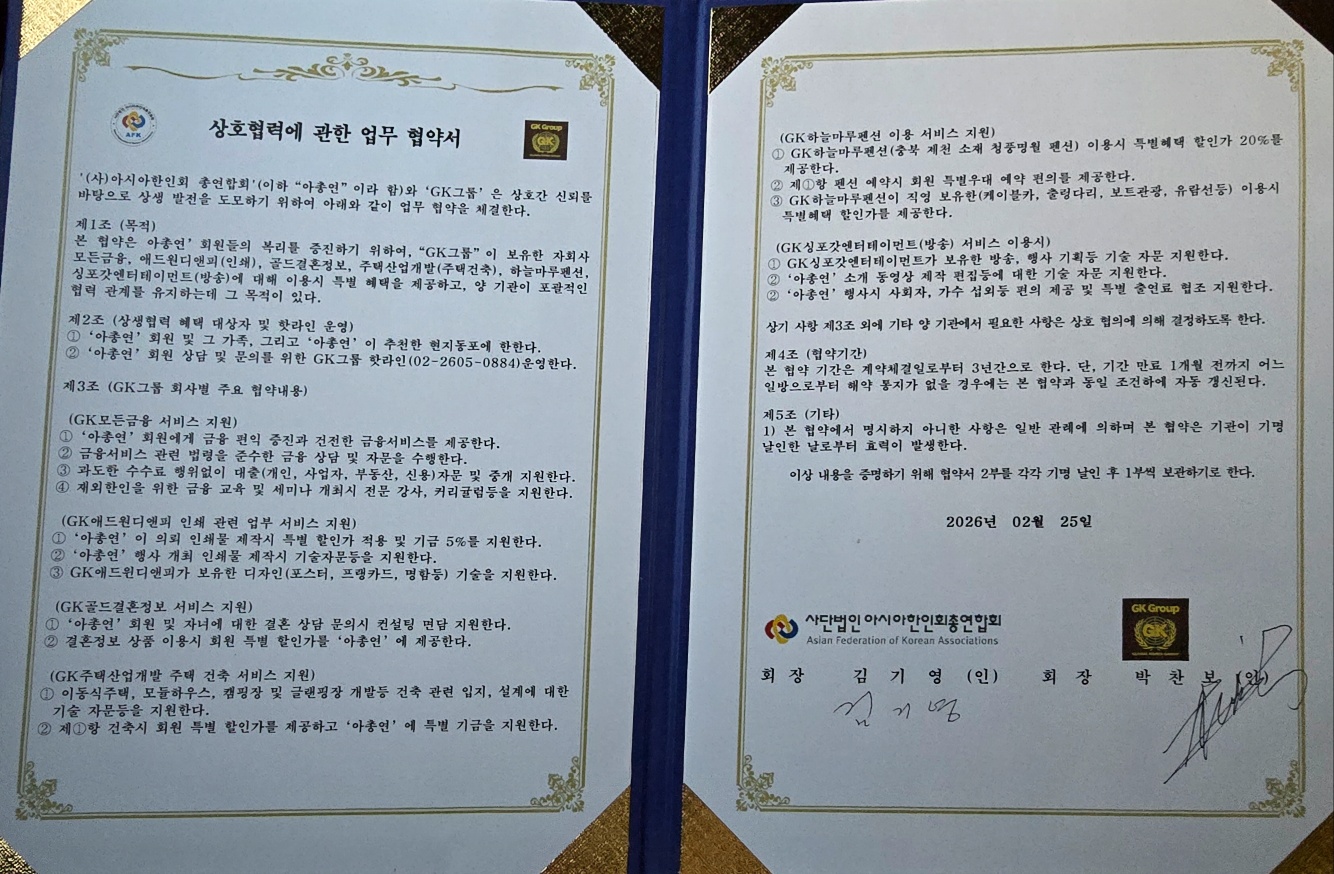 상호협력에 관한 업무 협약서
AFK
GK Group
GK
'(사)아시아한인회 총연합회'(이하 "아총연" 이라 함)와 'GK그룹' 은 상호간 신뢰를
바탕으로 상생 발전을 도모하기 위하여 아래와 같이 업무 협약을 체결한다.
제1조 (목적)
본 협약은 아총연' 회원들의 복리를 증진하기 위하여, "GK그룹" 이 보유한 자회사
모든금융, 애드윈디앤피(인쇄), 골드결혼정보, 주택산업개발(주택건축), 하늘마루펜션,
싱포갓엔터테이먼트(방송)에 대해 이용시 특별 혜택을 제공하고, 양 기관이 포괄적인
협력 관계를 유지하는데 그 목적이 있다.
제2조 (상생협력 혜택 대상자 및 핫라인 운영)
① '아총연' 회원 및 그 가족, 그리고 '아총연' 이 추천한 현지동포에 한한다.
② '아총연' 회원 상담 및 문의를 위한 GK그룹 핫라인(02-2605-0884)운영한다.
제3조 (GK그룹 회사별 주요 협약내용)
(GK모든금융 서비스 지원)
① '아총연' 회원에게 금융 편익 증진과 건전한 금융서비스를 제공한다.
② 금융서비스 관련 법령을 준수한 금융 상담 및 자문을 수행한다.
③ 과도한 수수료 행위없이 대출(개인, 사업자, 부동산, 신용)자문 및 중개 지원한다.
④ 재외한인을 위한 금융 교육 및 세미나 개최시 전문 강사, 커리큘럼등을 지원한다.
(GK애드윈디앤피 인쇄 관련 업부 서비스 지원)
① '아총연' 이 의뢰 인쇄물 제작시 특별 할인가 적용 및 기금 5%를 지원한다.
② '아총연' 행사 개최 인쇄물 제작시 기술자문등을 지원한다.
③ GK애드윈디앤피가 보유한 디자인(포스터, 프랭카드, 명함등) 기술을 지원한다.
(GK골드결혼정보 서비스 지원)
① '아총연' 회원 및 자녀에 대한 결혼 상담 문의시 컨설팅 면담 지원한다.
② 결혼정보 상품 이용시 회원 특별 할인가를 '아총연' 에 제공한다.
(GK주택산업개발 주택 건축 서비스 지원)
① 이동식주택, 모듈하우스, 캠핑장 및 글랜핑장 개발등 건축 관련 입지, 설계에 대한
기술 자문등을 지원한다.
② 제①항 건축시 회원 특별 할인가를 제공하고 '아총연' 에 특별 기금을 지원한다.
(GK하늘마루펜션 이용 서비스 지원)
① GK하늘마루펜션(충북 제천 소재 청풍명월 펜션) 이용시 특별혜택 할인가 20%를
제공한다.
② 제①항 펜션 예약시 회원 특별우대 예약 편의를 제공한다.
③ GK하늘마루펜션이 직영 보유한(케이블카, 출렁다리, 보트관광, 유람선등) 이용시
특별혜택 할인가를 제공한다.
(GK싱포갓엔터테이먼트(방송) 서비스 이용시)
① GK싱포갓엔터테이먼트가 보유한 방송, 행사 기획등 기술 자문 지원한다.
② '아총연' 소개 동영상 제작 편집등에 대한 기술 자문 지원한다.
② '아총연' 행사시 사회자, 가수 섭외등 편의 제공 및 특별 출연료 협조 지원한다.
상기 사항 제3조 외에 기타 양 기관에서 필요한 사항은 상호 협의에 의해 결정하도록 한다.
제4조 (협약기간)
본 협약 기간은 계약체결일로부터 3년간으로 한다. 단, 기간 만료 1개월 전까지 어느
일방으로부터 해약 통지가 없을 경우에는 본 협약과 동일 조건하에 자동 갱신된다.
제5조 (기타)
1) 본 협약에서 명시하지 아니한 사항은 일반 관례에 의하며 본 협약은 기관이 기명
날인한 날로부터 효력이 발생한다.
이상 내용을 증명하기 위해 협약서 2부를 각각 기명 날인 후 1부씩 보관하기로 한다.
2026년 02월 25일
사단법인 아시아한인회총연합회
Asian Federation of Korean Associations
GK Group
GK
회 장 김 기 영 (인) 회 장 박 찬 보 (인)
김 기 영